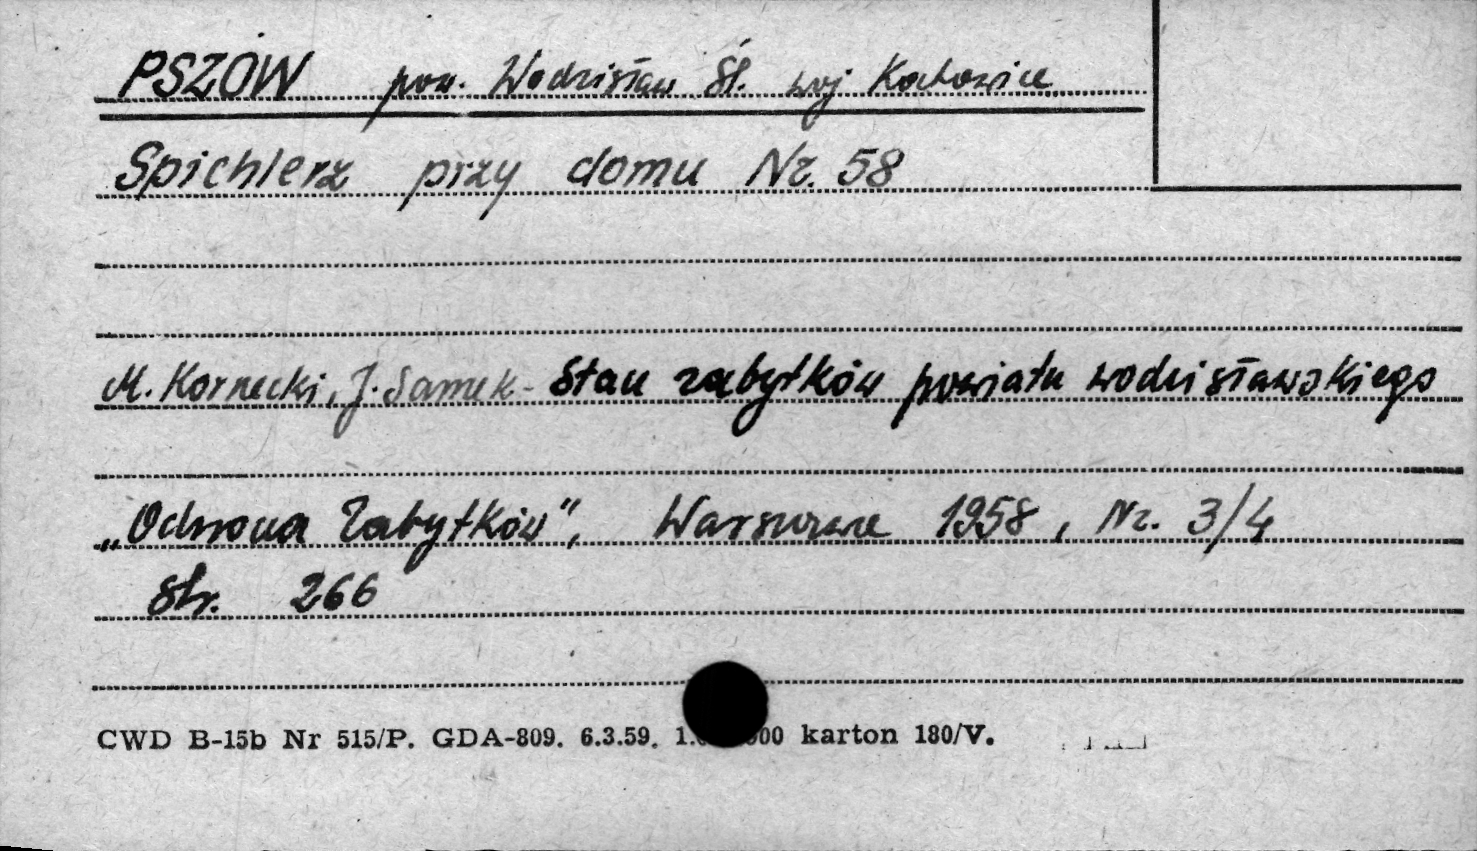 PSZÓW pow. Wodzisław Śl. woj Katowice
Spichlerz przy domu Nr. 58
M. Kornecki, J. Samek - Stan zabytków powiatu wodzisławskiego
„Ochrona Zabytków”, Warszawa 1958, Nr. 3/4
Str. 266
CWD B-15b Nr 515/P. GDA-809. 6.3.59. karton 180/V.